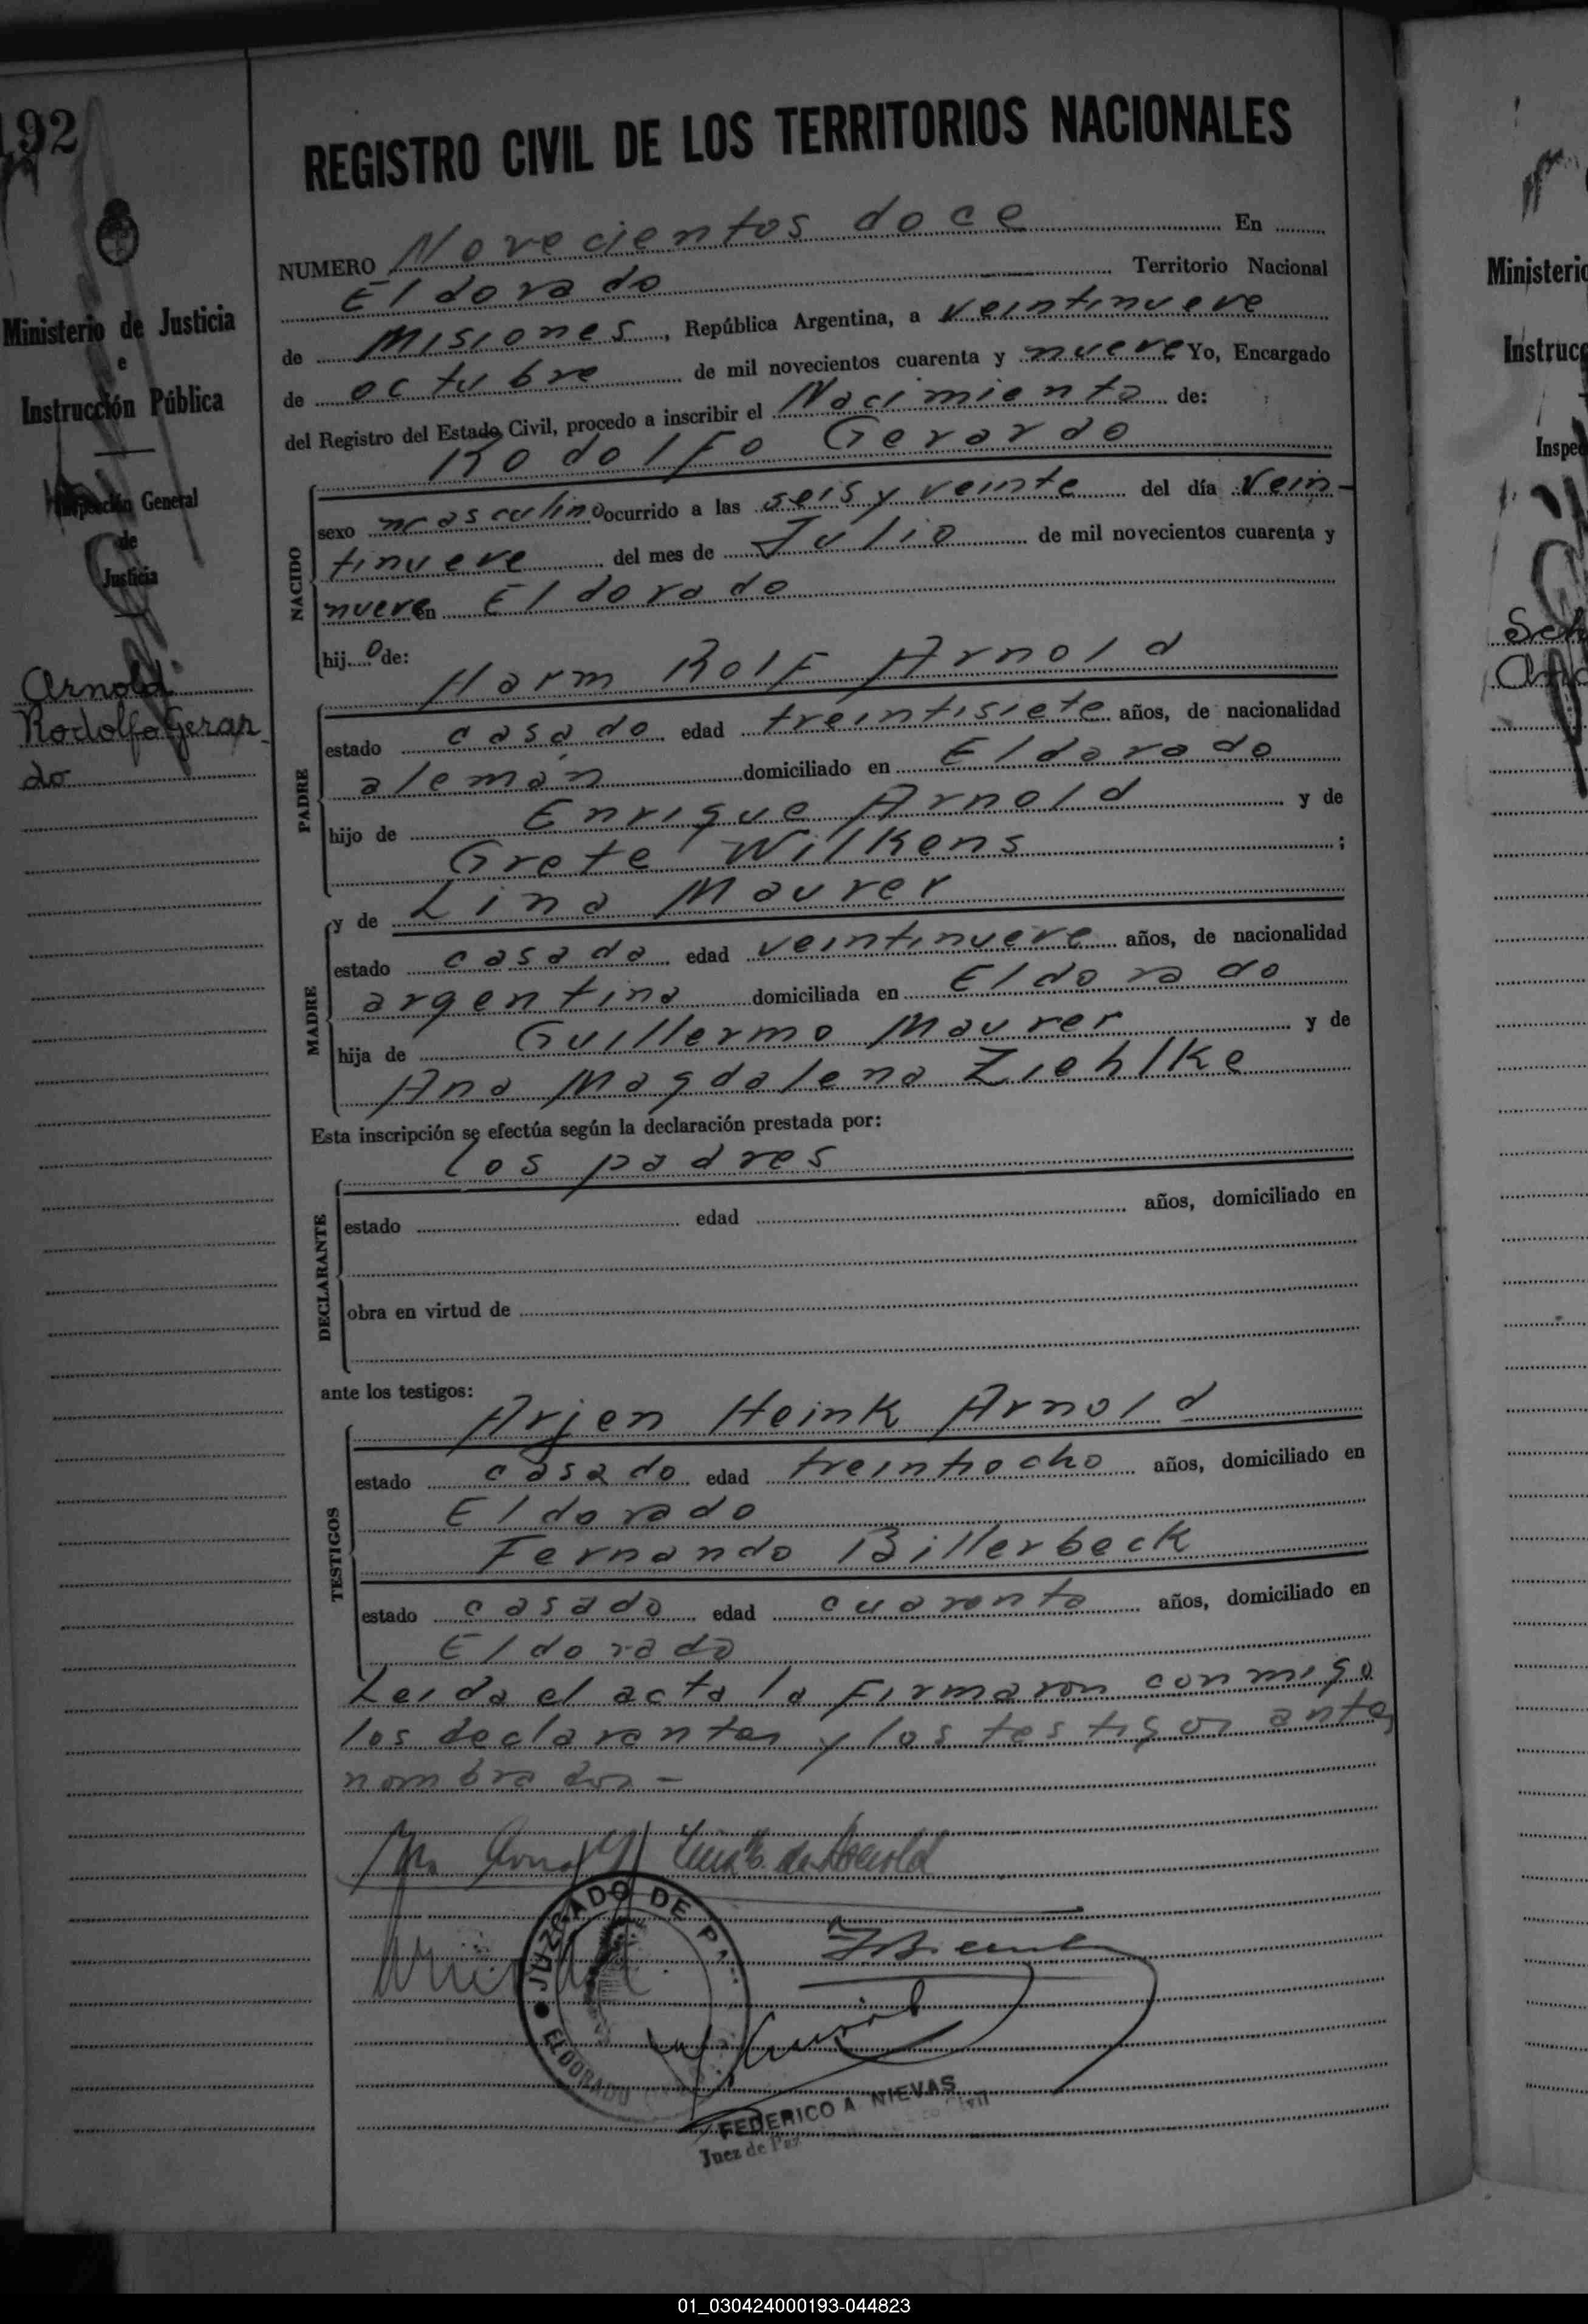 192
Ministerio de Justicia
e
Instrucción Pública
Inspección General
de
Justicia
Arnold
Rodolfo Gerar
do
REGISTRO CIVIL DE LOS TERRITORIOS NACIONALES
NUMERO Novecientos doce En
Eldorado Territorio Nacional
de Misiones, República Argentina, a veintinueve
de octubre de mil novecientos cuarenta y nueve Yo, Encargado
del Registro del Estado Civil, procedo a inscribir el Nacimiento de:
Rodolfo Gerardo
NACIDO
sexo masculino ocurrido a las seis y veinte del día vein-
tinueve del mes de Julio de mil novecientos cuarenta y
nueve en Eldorado
hijo de:
Harm Rolf Arnold
PADRE
estado casado edad treintisiete años, de nacionalidad
alemán domiciliado en Eldorado
hijo de Enrique Arnold y de
Grete Wilkens ;
y de Lina Maurer
MADRE
estado casada edad veintinueve años, de nacionalidad
argentina domiciliada en Eldorado
hija de Guillermo Maurer y de
Ana Magdalena Ziehlke
Esta inscripción se efectúa según la declaración prestada por:
los padres
DECLARANTE
estado edad años, domiciliado en
obra en virtud de
ante los testigos:
Arjen Heink Arnold
TESTIGOS
estado casado edad treintiocho años, domiciliado en
Eldorado
Fernando Billerbeck
estado casado edad cuarenta años, domiciliado en
Eldorado
Leida el acta la firmaron conmigo
los declarantes y los testigos antes
nombrados -
de Arnold
JUZGADO DE
ELDORADO
FEDERICO A. NIEVAS
Juez de Paz
Civil
Ministerio
Instrucc
Inspec
Sch
01_030424000193-044823